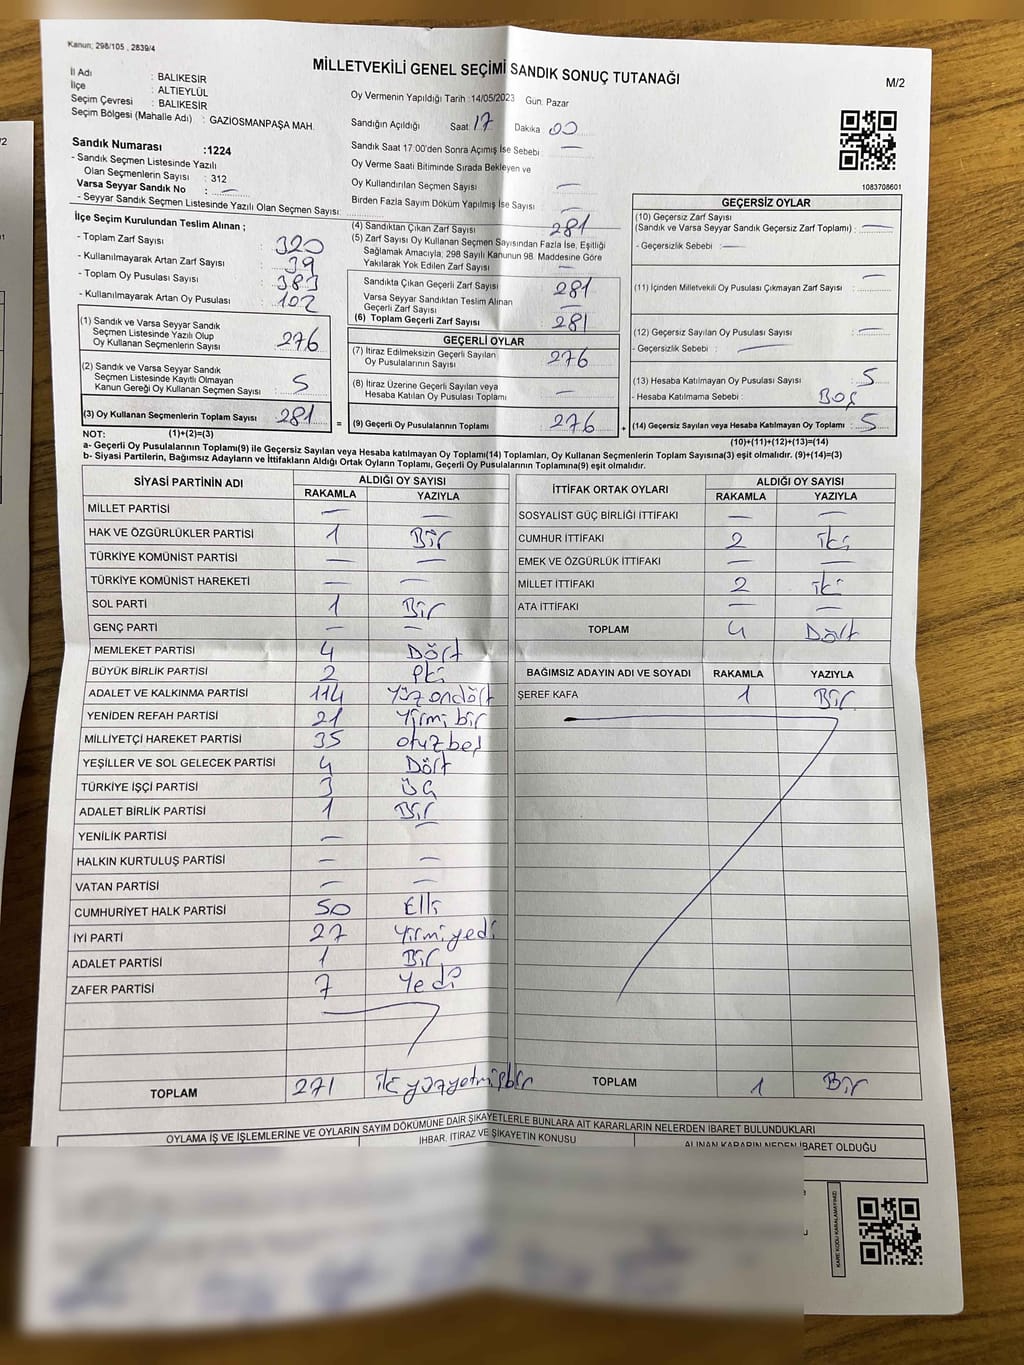 Kanun; 298/105 , 2839/4
MİLLETVEKİLİ GENEL SEÇİMİ SANDIK SONUÇ TUTANAĞI
M/2
İl Adı : BALIKESİR
İlçe : ALTIEYLÜL
Seçim Çevresi : BALIKESİR
Seçim Bölgesi (Mahalle Adı) : GAZİOSMANPAŞA MAH.
Sandık Numarası :1224
- Sandık Seçmen Listesinde Yazılı
Olan Seçmenlerin Sayısı : 312
Varsa Seyyar Sandık No : —
- Seyyar Sandık Seçmen Listesinde Yazılı Olan Seçmen Sayısı:
Oy Vermenin Yapıldığı Tarih :14/05/2023 Gün: Pazar
Sandığın Açıldığı Saat 17 Dakika 00
Sandık Saat 17:00'den Sonra Açımış İse Sebebi : —
Oy Verme Saati Bitiminde Sırada Bekleyen ve
Oy Kullandırılan Seçmen Sayısı —
Birden Fazla Sayım Döküm Yapılmış İse Sayısı —
1083708601
İlçe Seçim Kurulundan Teslim Alınan ;
- Toplam Zarf Sayısı : 320
- Kullanılmayarak Artan Zarf Sayısı : 39
- Toplam Oy Pusulası Sayısı : 383
- Kullanılmayarak Artan Oy Pusulası : 102
(1) Sandık ve Varsa Seyyar Sandık
Seçmen Listesinde Yazılı Olup
Oy Kullanan Seçmenlerin Sayısı : 276
(2) Sandık ve Varsa Seyyar Sandık
Seçmen Listesinde Kayıtlı Olmayan
Kanun Gereği Oy Kullanan Seçmen Sayısı : 5
(3) Oy Kullanan Seçmenlerin Toplam Sayısı : 281
(4) Sandıktan Çıkan Zarf Sayısı : 281
(5) Zarf Sayısı Oy Kullanan Seçmen Sayısından Fazla İse, Eşitliği
Sağlamak Amacıyla; 298 Sayılı Kanunun 98. Maddesine Göre
Yakılarak Yok Edilen Zarf Sayısı : —
Sandıkta Çıkan Geçerli Zarf Sayısı : 281
Varsa Seyyar Sandıktan Teslim Alınan
Geçerli Zarf Sayısı : —
(6) Toplam Geçerli Zarf Sayısı : 281
GEÇERLİ OYLAR
(7) İtiraz Edilmeksizin Geçerli Sayılan
Oy Pusulalarının Sayısı : 276
(8) İtiraz Üzerine Geçerli Sayılan veya
Hesaba Katılan Oy Pusulası Toplamı : —
= (9) Geçerli Oy Pusulalarının Toplamı : 276
GEÇERSİZ OYLAR
(10) Geçersiz Zarf Sayısı
(Sandık ve Varsa Seyyar Sandık Geçersiz Zarf Toplamı) : —
- Geçersizlik Sebebi : —
(11) İçinden Milletvekili Oy Pusulası Çıkmayan Zarf Sayısı : —
(12) Geçersiz Sayılan Oy Pusulası Sayısı : —
- Geçersizlik Sebebi : —
(13) Hesaba Katılmayan Oy Pusulası Sayısı : 5
- Hesaba Katılmama Sebebi : Boş
+ (14) Geçersiz Sayılan veya Hesaba Katılmayan Oy Toplamı : 5
NOT: (1)+(2)=(3) (10)+(11)+(12)+(13)=(14)
a- Geçerli Oy Pusulalarının Toplamı(9) ile Geçersiz Sayılan veya Hesaba katılmayan Oy Toplamı(14) Toplamları, Oy Kullanan Seçmenlerin Toplam Sayısına(3) eşit olmalıdır. (9)+(14)=(3)
b- Siyasi Partilerin, Bağımsız Adayların ve İttifakların Aldığı Ortak Oyların Toplamı, Geçerli Oy Pusulalarının Toplamına(9) eşit olmalıdır.
SİYASİ PARTİNİN ADI ALDIĞI OY SAYISI
RAKAMLA YAZIYLA
MİLLET PARTİSİ — —
HAK VE ÖZGÜRLÜKLER PARTİSİ 1 Bir
TÜRKİYE KOMÜNİST PARTİSİ — —
TÜRKİYE KOMÜNİST HAREKETİ — —
SOL PARTİ 1 Bir
GENÇ PARTİ — —
MEMLEKET PARTİSİ 4 Dört
BÜYÜK BİRLİK PARTİSİ 2 İki
ADALET VE KALKINMA PARTİSİ 114 Yüzondört
YENİDEN REFAH PARTİSİ 21 Yirmi bir
MİLLİYETÇİ HAREKET PARTİSİ 35 otuzbeş
YEŞİLLER VE SOL GELECEK PARTİSİ 4 Dört
TÜRKİYE İŞÇİ PARTİSİ 3 Üç
ADALET BİRLİK PARTİSİ 1 Bir
YENİLİK PARTİSİ — —
HALKIN KURTULUŞ PARTİSİ — —
VATAN PARTİSİ — —
CUMHURİYET HALK PARTİSİ 50 Elli
İYİ PARTİ 27 Yirmi yedi
ADALET PARTİSİ 1 Bir
ZAFER PARTİSİ 7 Yedi
TOPLAM 271 ikiyüzyetmişbir
İTTİFAK ORTAK OYLARI ALDIĞI OY SAYISI
RAKAMLA YAZIYLA
SOSYALİST GÜÇ BİRLİĞİ İTTİFAKI — —
CUMHUR İTTİFAKI 2 iki
EMEK VE ÖZGÜRLÜK İTTİFAKI — —
MİLLET İTTİFAKI 2 iki
ATA İTTİFAKI — —
TOPLAM 4 Dört
BAĞIMSIZ ADAYIN ADI VE SOYADI RAKAMLA YAZIYLA
ŞEREF KAFA 1 Bir
TOPLAM 1 Bir
OYLAMA İŞ VE İŞLEMLERİNE VE OYLARIN SAYIM DÖKÜMÜNE DAİR ŞİKAYETLERLE BUNLARA AİT KARARLARIN NELERDEN İBARET BULUNDUKLARI
İHBAR, İTİRAZ VE ŞİKAYETİN KONUSU ALINAN KARARIN NEDEN İBARET OLDUĞU
KARE KODU KARALAMAYINIZ!